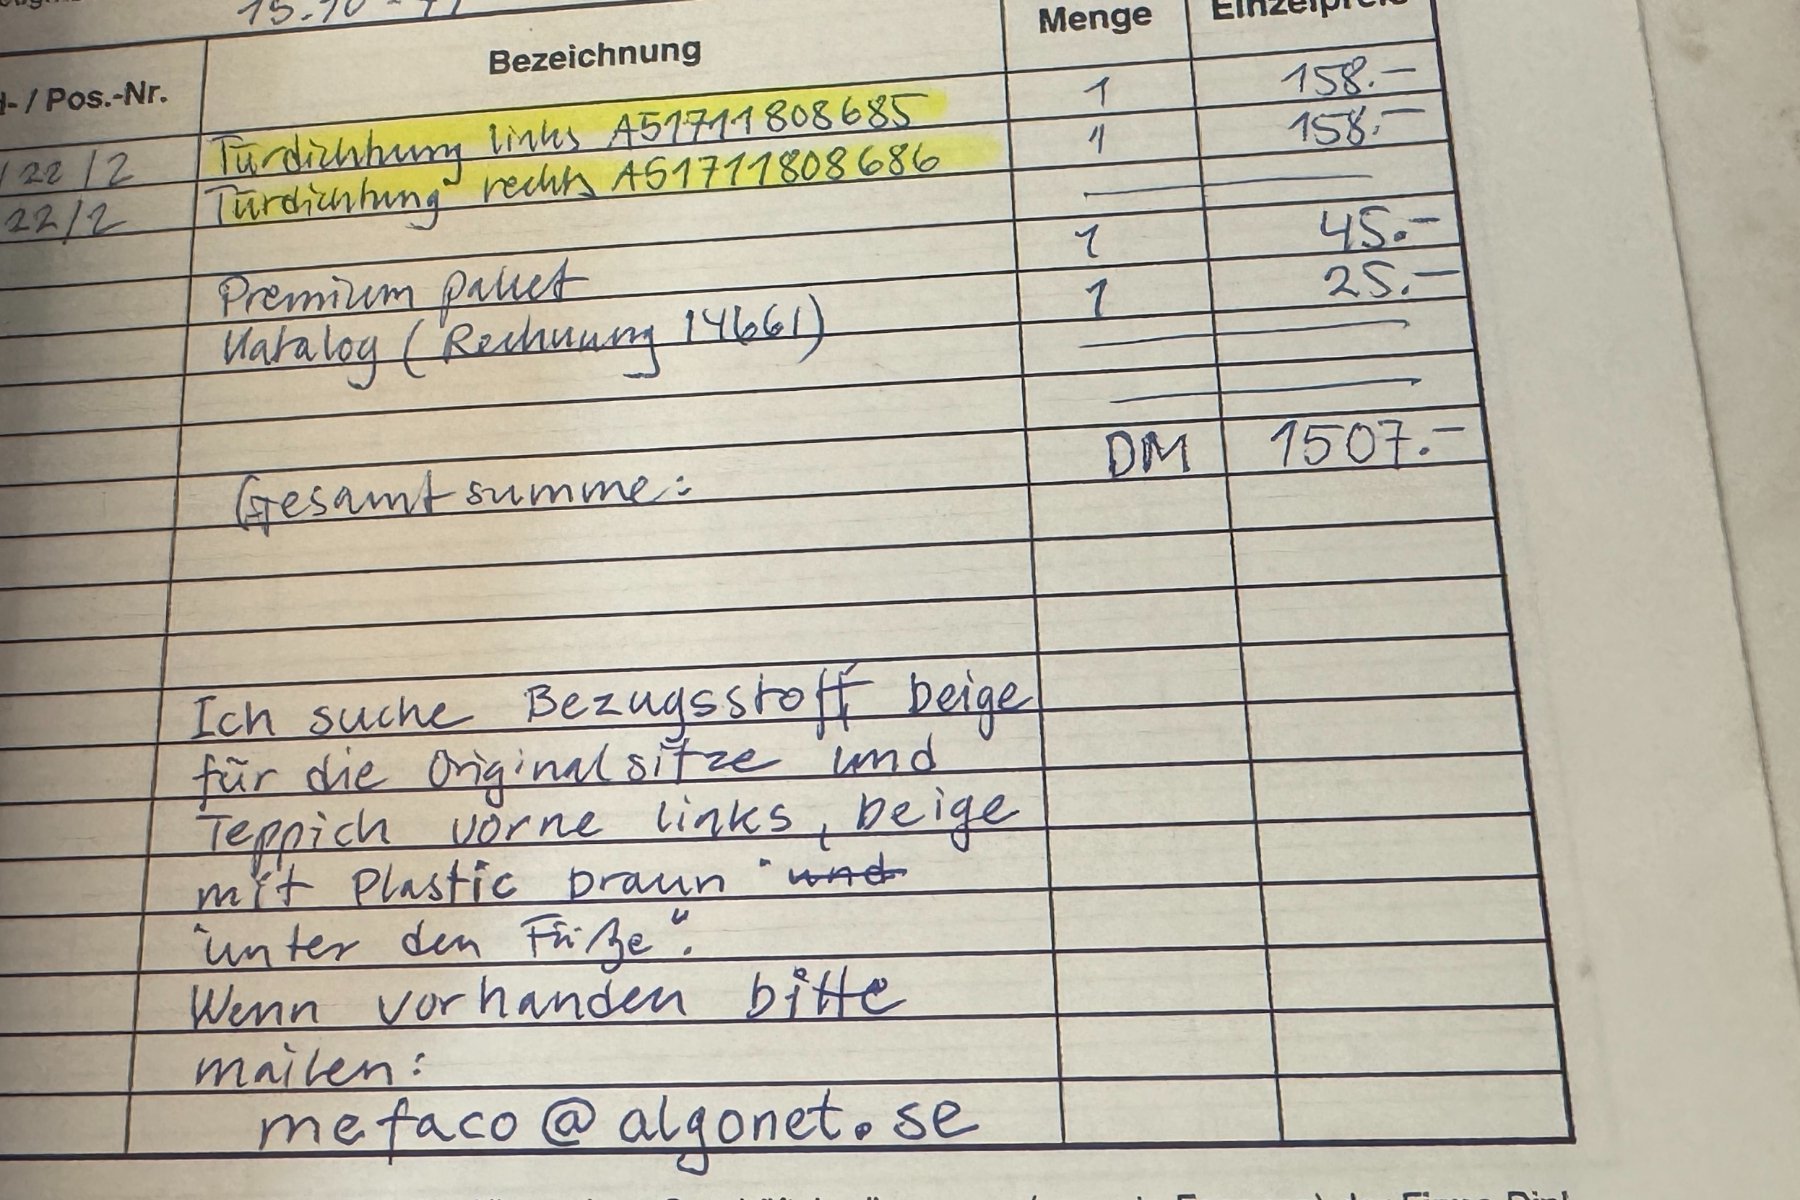 Menge Einzelpreis
- / Pos.-Nr. Bezeichnung
22/2 Türdichtung links A51711808685 1 158.-
22/2 Türdichtung rechts A51711808686 1 158.-
Premium paket 1 45.-
Katalog (Rechnung 14661) 1 25.-
Gesamtsumme: DM 1507.-
Ich suche Bezugsstoff beige
für die Originalsitze und
Teppich vorne links, beige
mit Plastic braun " und
"unter den Füße".
Wenn vorhanden bitte
mailen:
mefaco@algonet.se